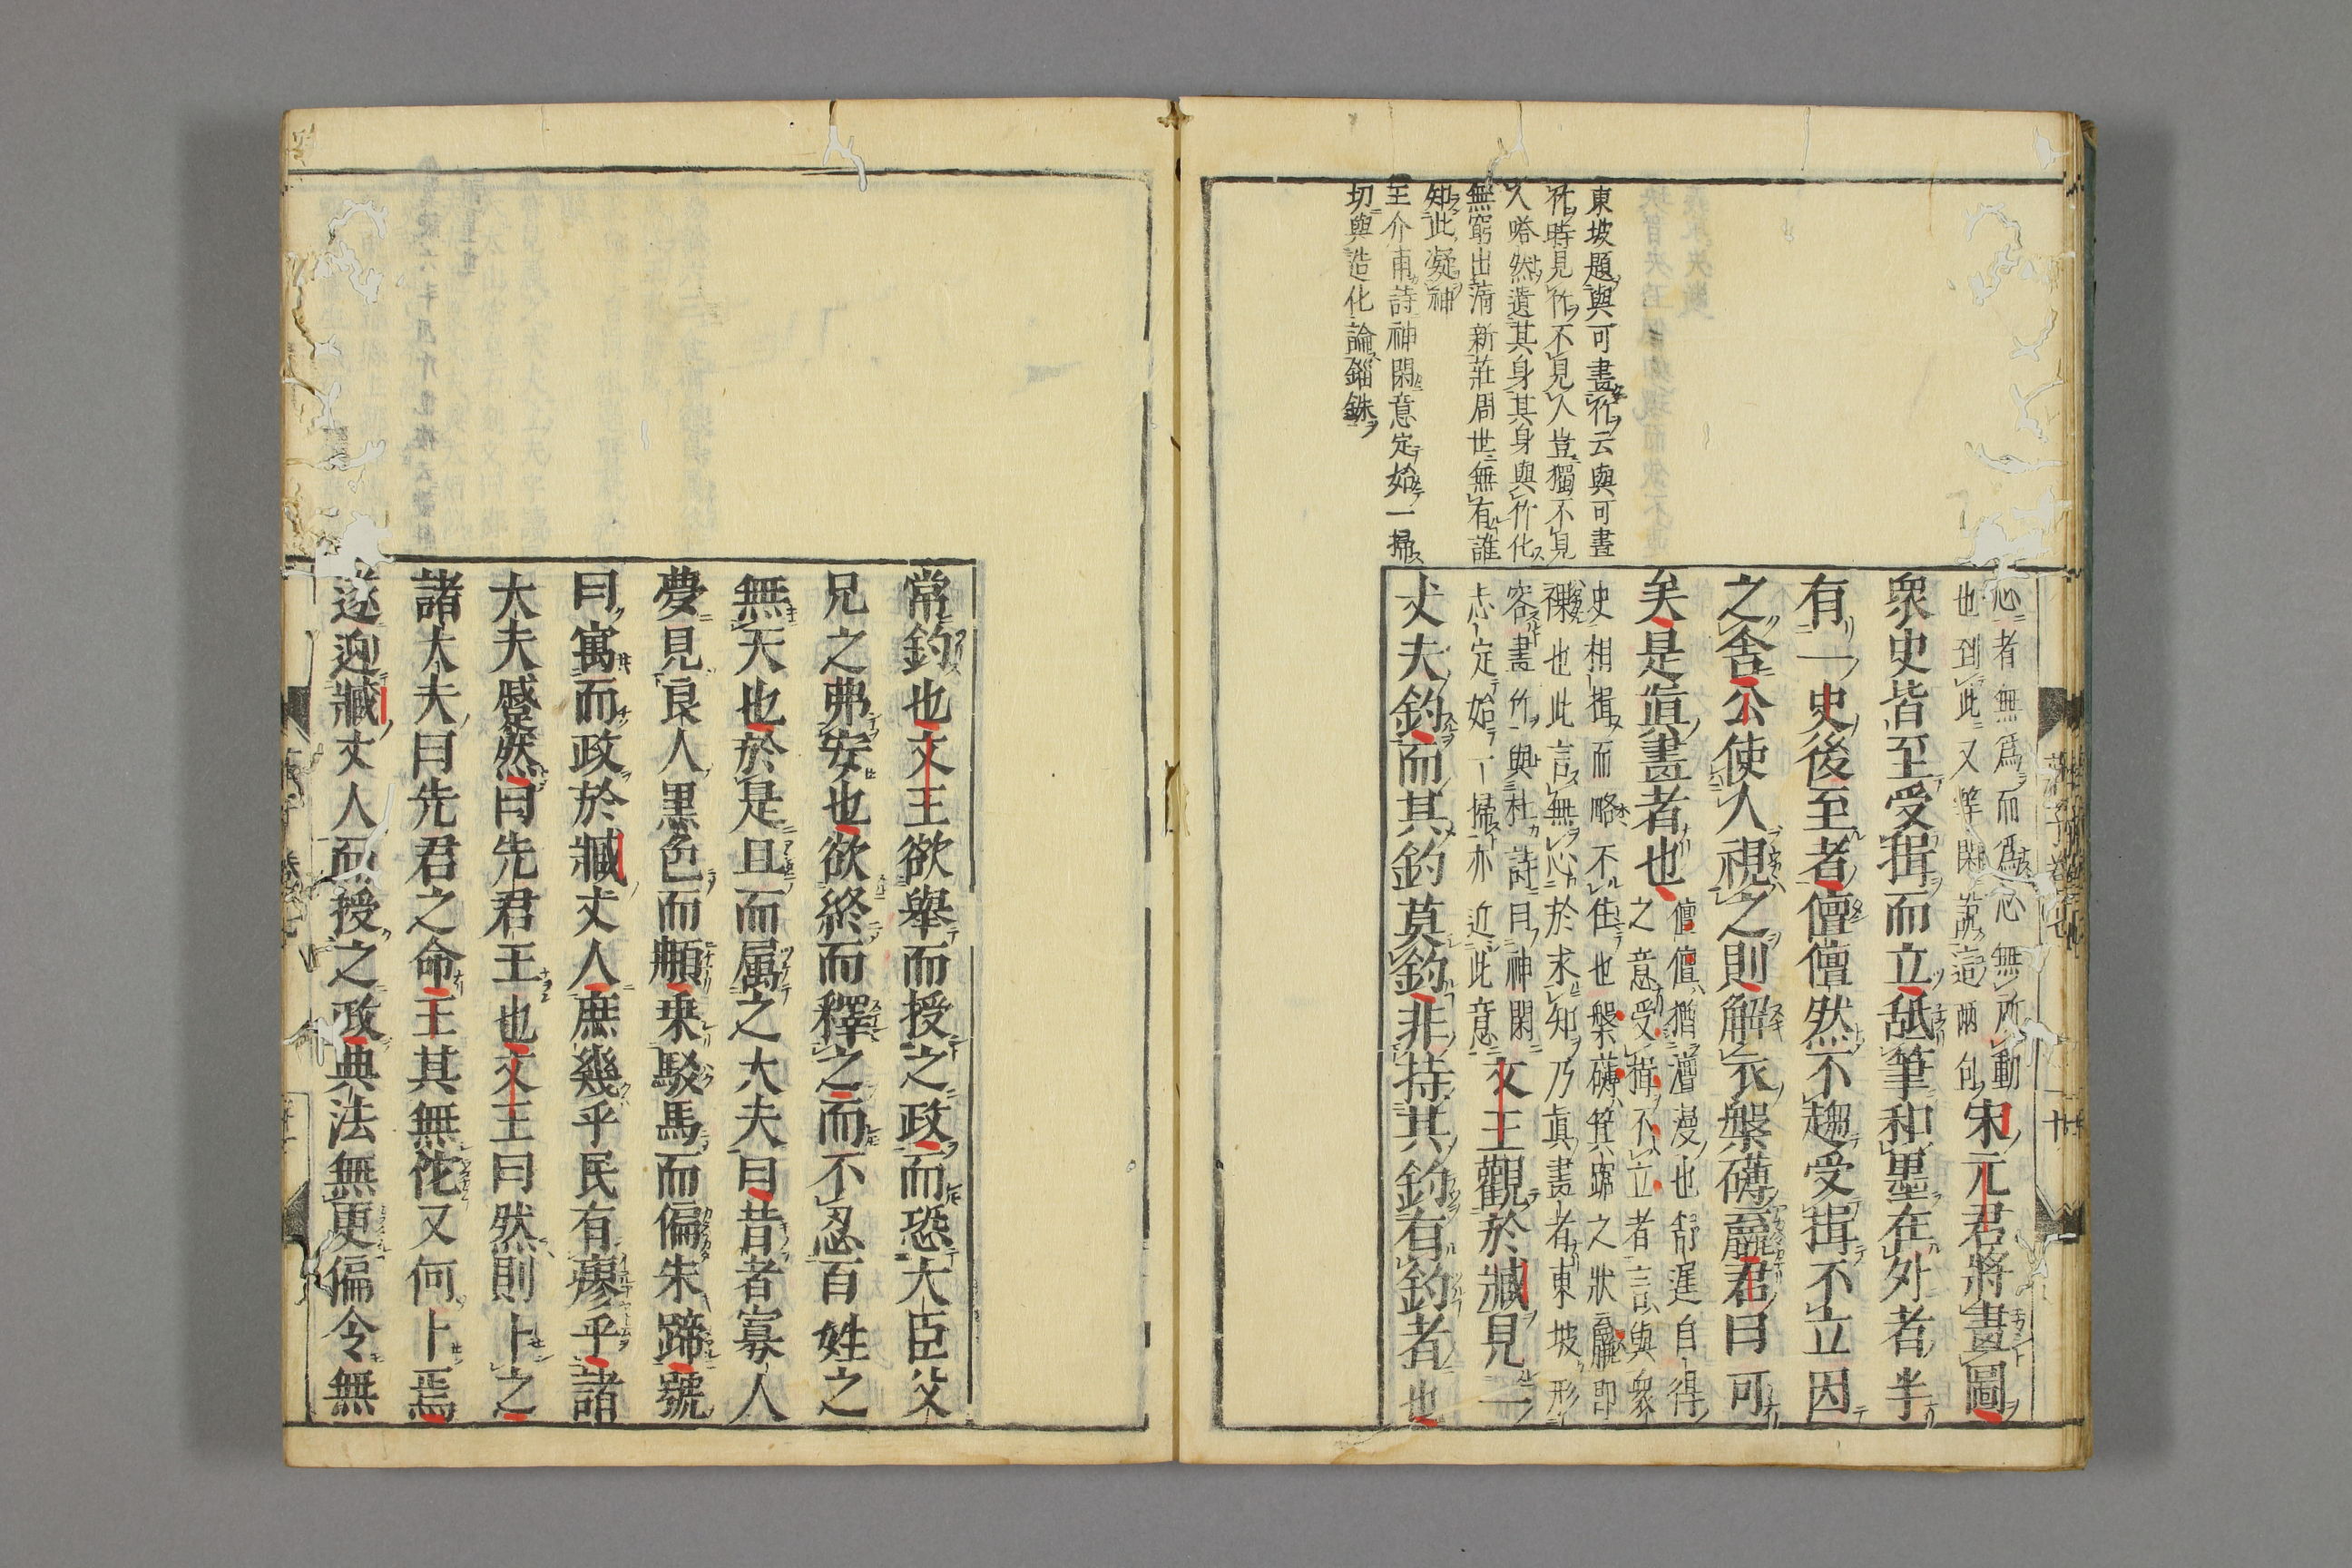 東坡題與可畫竹云與可畫
竹時見竹不見人豈獨不見
人嗒然遺其身其身與竹化
無窮出清新莊周世無有誰
知此凝神
王介甫詩神閑意定始一掃
切與造化論錙銖
心者無爲而爲心無所動
也到此又繫閑話這兩句
宋元君將畫圖
衆史皆至受揖而立舐筆和墨在外者半
有一史後至者儃儃然不趨受揖不立因
之舍公使人視之則解衣槃礴臝君曰可
矣是眞畫者也
儃儃猶澶漫也舒遲自得
之意受揖不立者言與衆
史相揖而略不住也槃礴箕踞之狀臝即
裸也此言無心於求知乃眞畫者東坡形
容畫竹與杜詩曰神閑
志定始一掃亦近此意
文王觀於臧見一
丈夫釣而其釣莫釣非持其釣有釣者也
常釣也文王欲舉而授之政而恐大臣父
兄之弗安也欲終而釋之而不忍百姓之
無天也於是旦而屬之大夫曰昔者寡人
夢見良人黑色而䫇乗駁馬而偏朱蹄號
曰寓而政於臧丈人庶幾乎民有瘳乎諸
大夫蹙然曰先君王也文王曰然則卜之
諸大夫曰先君之命王其無佗又何卜焉
遂迎臧丈人而授之政典法無更偏令無